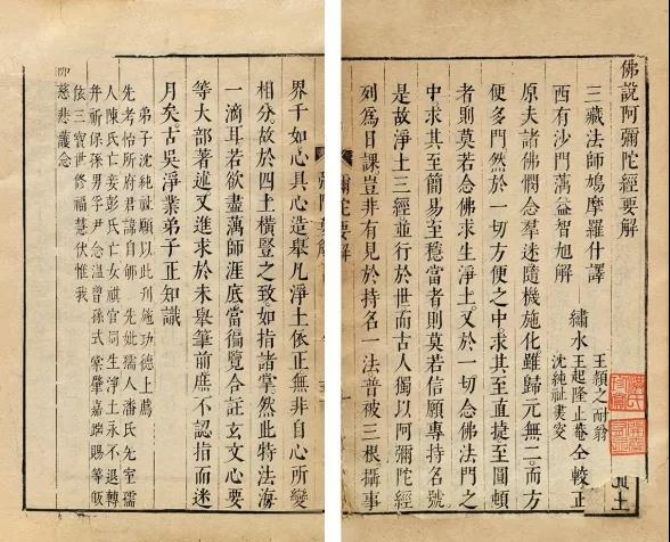 佛說阿彌陀經要解
三藏法師鳩摩羅什譯
西有沙門蕅益智旭解
王穎之耐翁
繡水王起隆止菴仝較正
沈純祉實安
原夫諸佛憫念羣迷隨機施化雖歸元無二而方
便多門然於一切方便之中求其至直捷至圓頓
者則莫若念佛求生淨土又於一切念佛法門之
中求其至簡易至穩當者則莫若信願專持名號
是故淨土三經並行於世而古人獨以阿彌陀經
列爲日課豈非有見於持名一法普被三根攝事
彌陀要解
界千如心具心造舉凡淨土依正無非自心所變
相分故於四土橫豎之致如指諸掌然此特法海
一滴耳若欲盡蕅師涯底當徧覽合註玄文心要
等大部著述又進求於未舉筆前庶不認指而迷
月矣古吳淨業弟子正知識
弟子沈純祉願以此刊施功德上薦
先考怡所府君諱自邠 先妣孺人潘氏先室孺
人陳氏亡妾彭氏亡女祺官同生淨土永不退轉
并祈保孫男孚尹念溫曾孫式 肇嘉 賜等皈
依三寶世修福慧伏惟我
慈悲護念